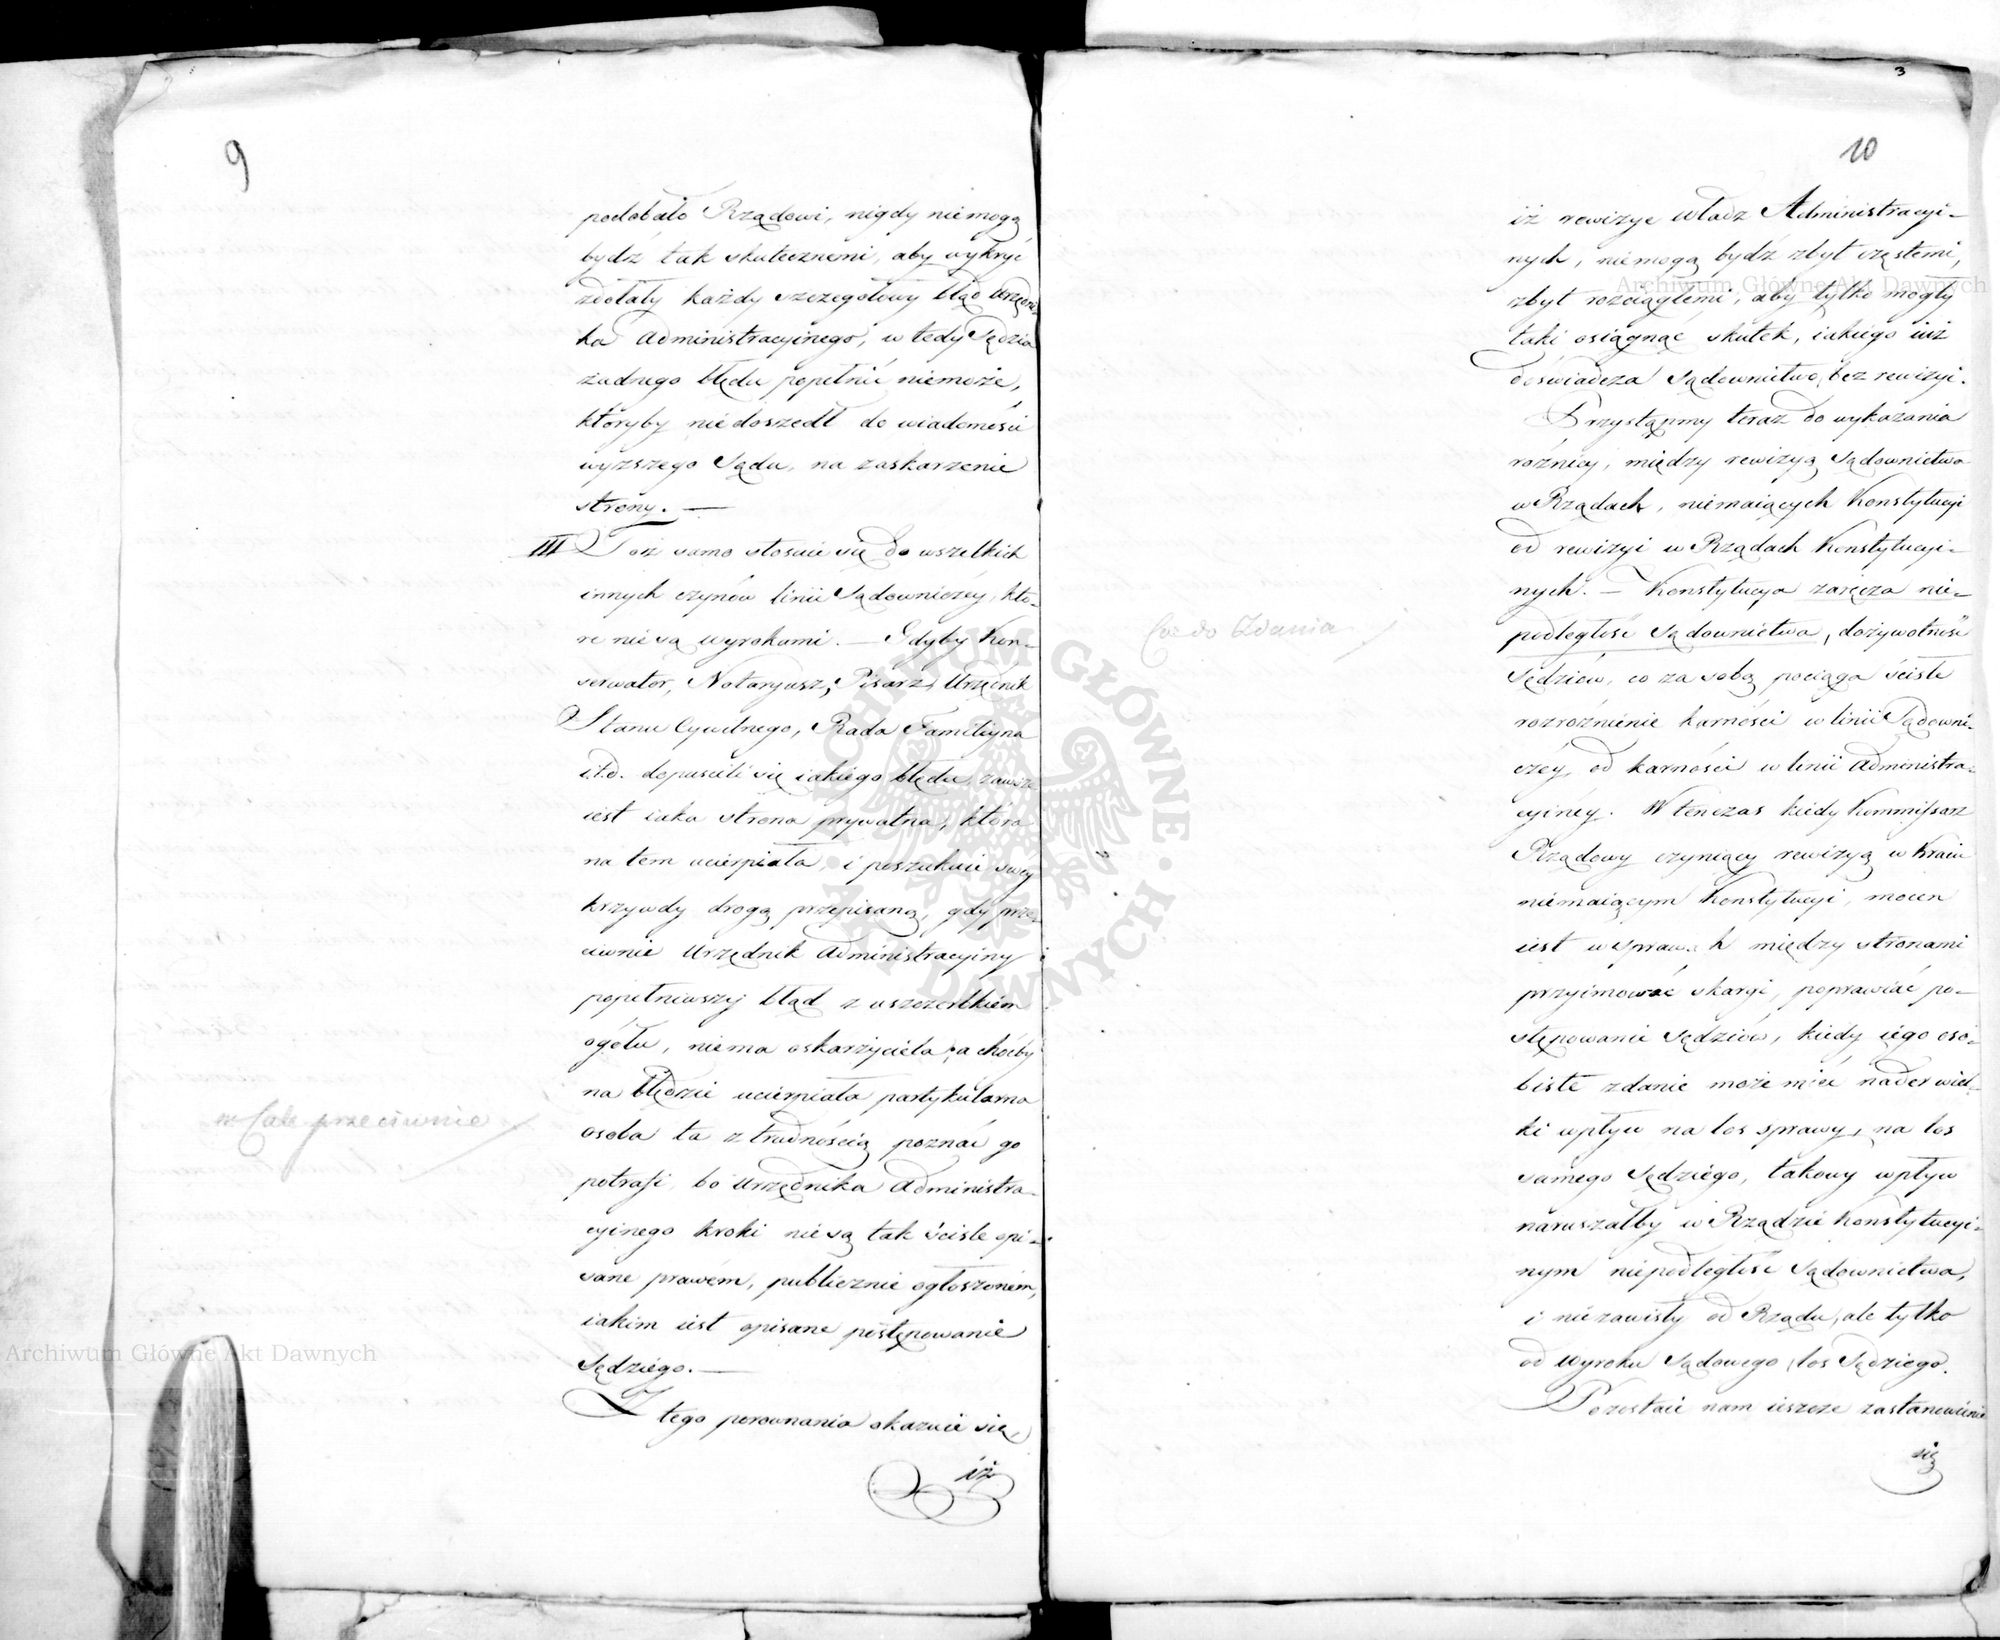 9
podobało Rządowi, nigdy niemogą
bydź tak skutecznemi, aby wykryć
zdołały każdy szczegółowy błąd Urzędni-
ka Administracyinego, w tedy Sędzia
żadnego błędu popełnić niemoże,
któryby niedoszedł do wiadomości
wyższego Sądu, na zaskarżenie
strony. —
III Toż samo stosuie się do wszelkich
innych czynów linii Sądowniczéy, któ-
re nie są wyrokami. — Gdyby Kon-
serwator, Notaryusz, Pisarz, Urzędnik
Stanu Cywilnego, Rada Familiyna
i.t.d. dopuścili się iakiego błędu, zawsze
iest iaka strona prywatna, która
na tem ucierpiała, i poszukuie swey
krzywdy drogą przepisaną, gdy prze-
ciwnie Urzędnik Administracyiny
popełniwszy błąd z uszczerbkiem
ogółu, niema oskarżyciela, a choćby
na błędzie ucierpiała partykularna
w Cale przeciwnie
osoba ta z trudnością poznać go
potrafi, bo Urzędnika Administra-
cyinego kroki nie są tak ściśle opi-
sane prawem, publicznie ogłoszoném,
iakim iest opisane postępowanie
Sędziego. —
Z tego porownania okazuie się,
iż
3
10
iż rewizye władz Administracyi-
nych, niemogą bydź zbyt częstemi,
zbyt rozciągłemi, aby tylko mogły
taki osiągnąć skutek, iakiego iuż
doświadcza Sądownictwo, bez rewizyi.
Przystąpmy teraz do wykazania
różnicy, między rewizyą Sądownictwa
w Rządach, niemaiących Konstytucyi
od rewizyi w Rządach Konstytucyi-
nych. — Konstytucya zaręcza nie-
podległość Sądownictwa, dożywotność
Co do Zdania
Sędziów, co za sobą pociąga ścisłe
rozróżnienie karności w linii Sądowni-
czéy, od karności w linii Administra-
cyinéy. W tenczas kiedy Kommissarz
Rządowy czyniący rewizyą w Kraiu
niemaiącym Konstytucyi, mocen
iest w sprawach między stronami
przyimować skargi, poprawiać po-
stępowanie Sędziów, kiedy iego oso-
biste zdanie może mieć nader wiel-
ki wpływ na los sprawy, na los
samego Sędziego, takowy wpływ
naruszałby w Rządzie Konstytucyi-
nym niepodległość Sądownictwa,
i niezawisły od Rządu, ale tylko
od wyroku Sądowego, los Sędziego.
Pozostaie nam ieszcze zastanowienie
się
Archiwum Główne Akt Dawnych
Archiwum Główne Akt Dawnych
ARCHIWUM GŁÓWNE · AKT DAWNYCH ·